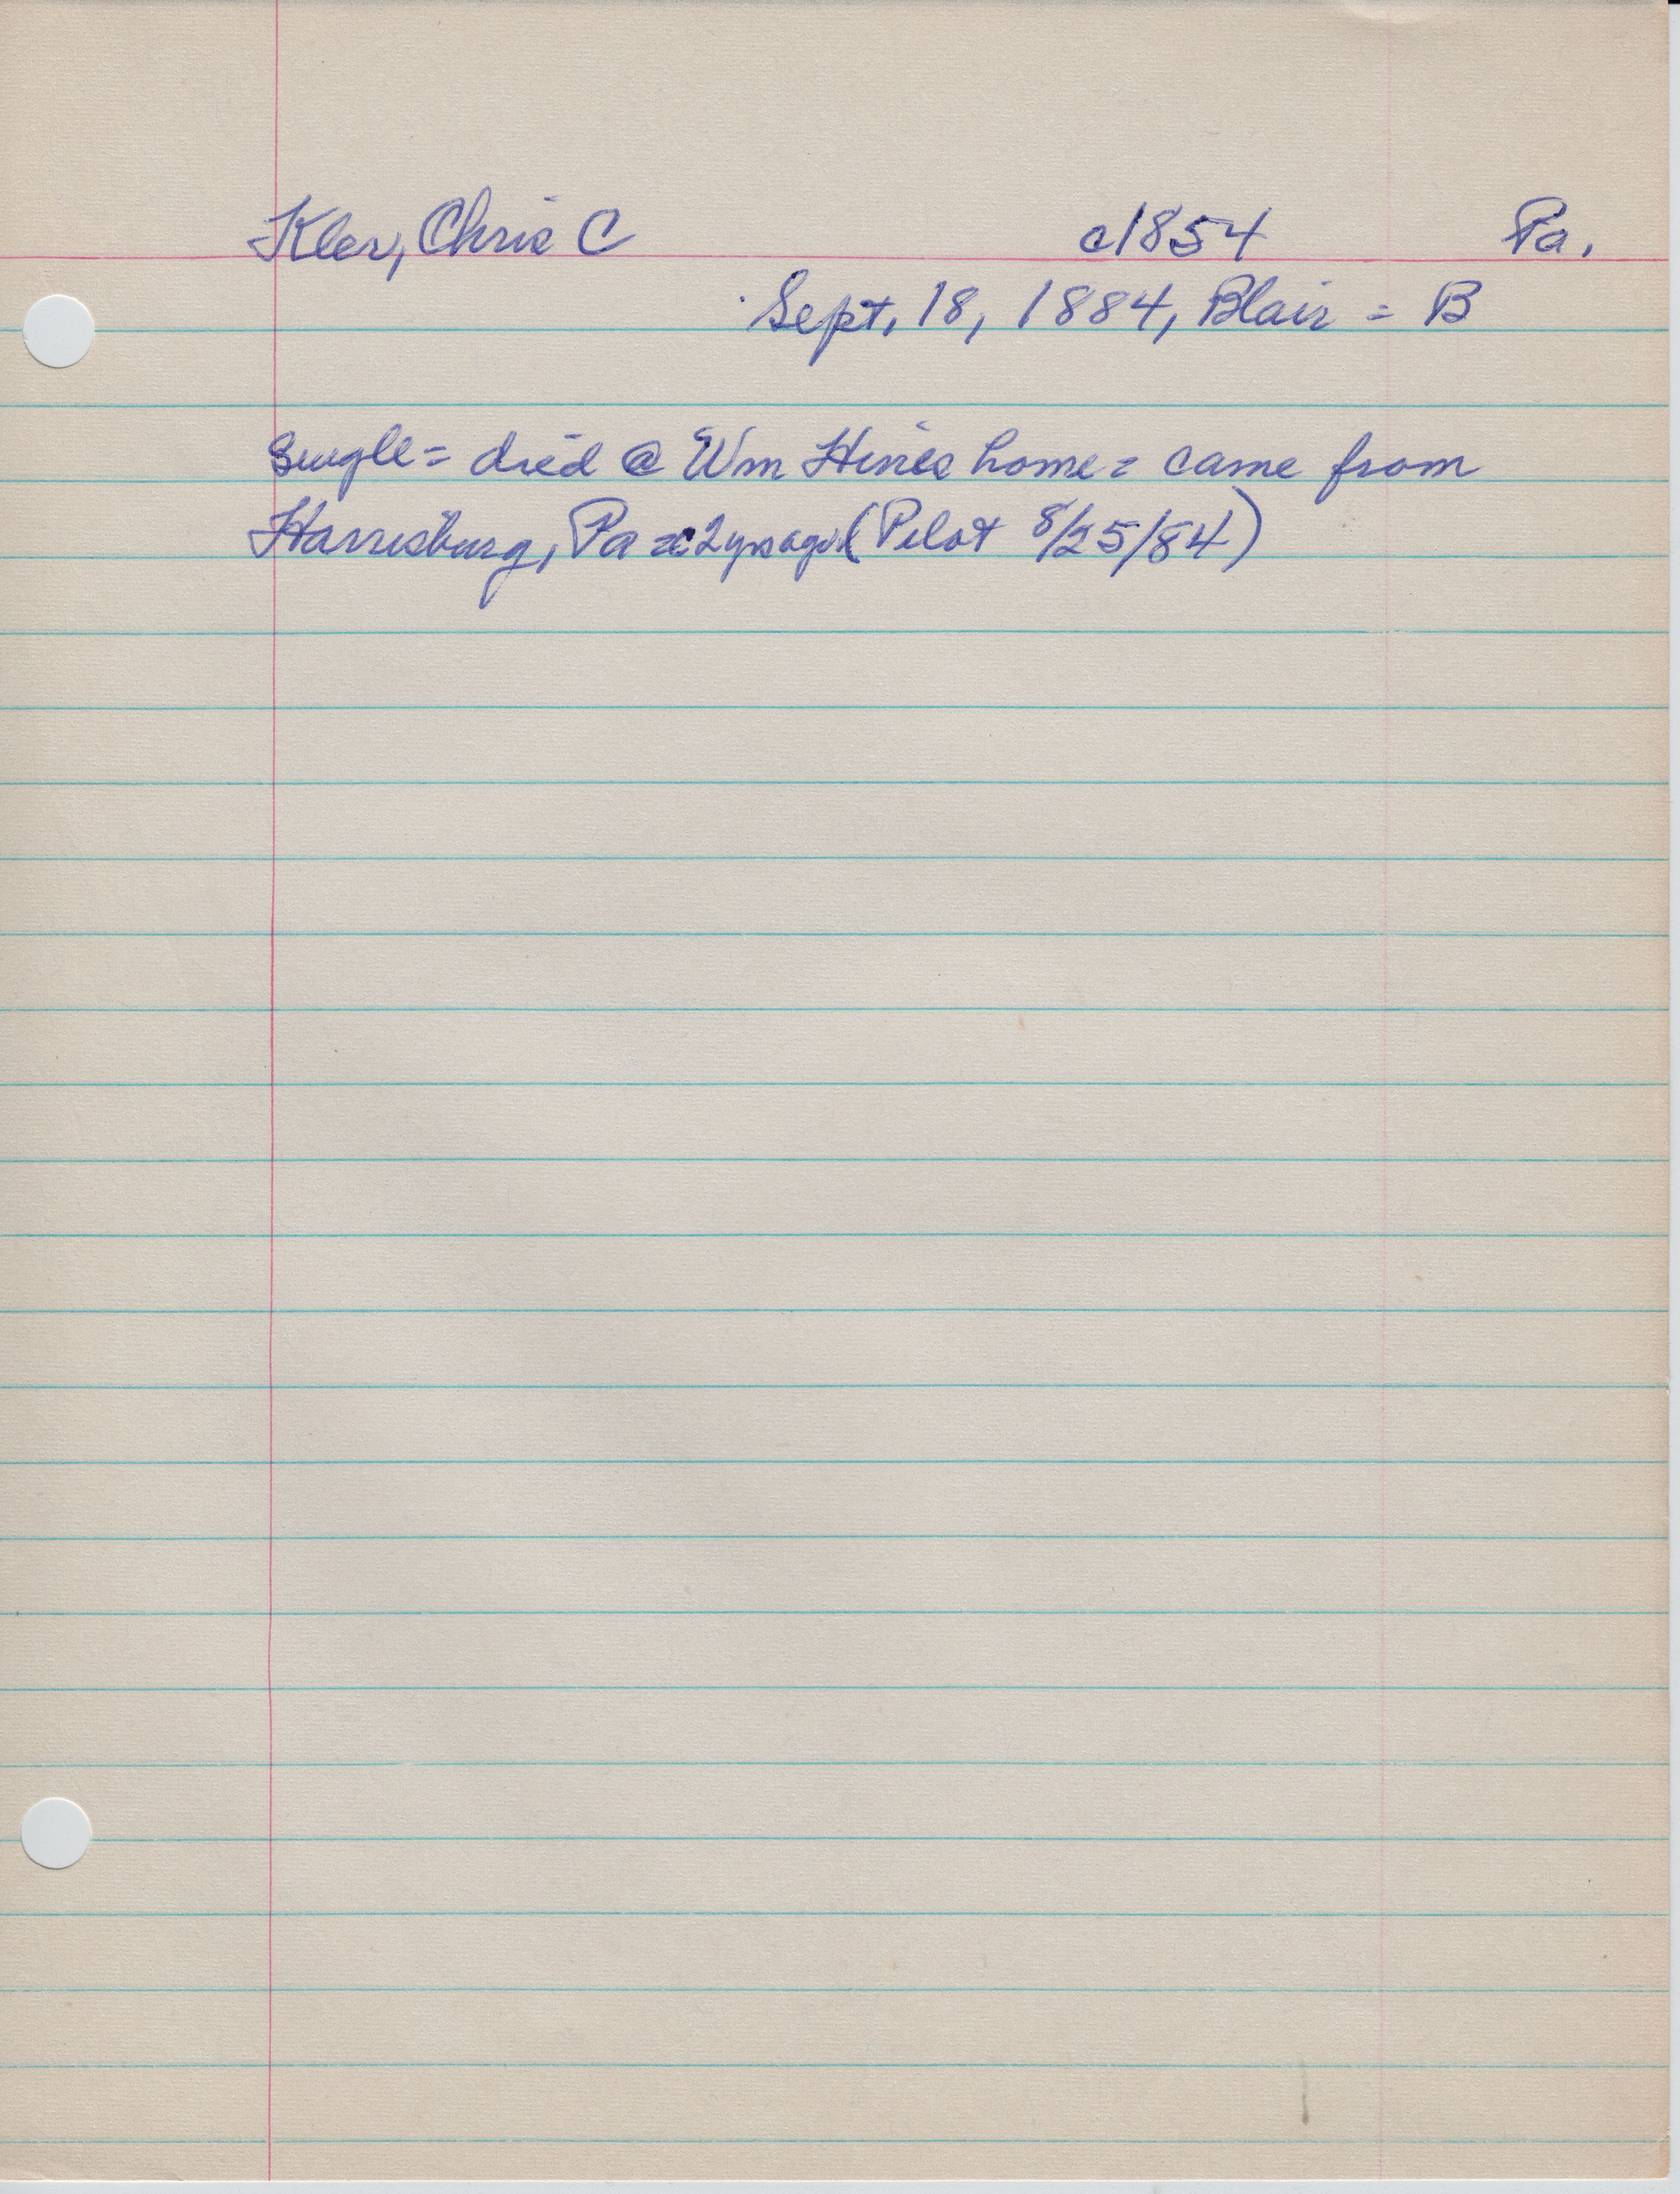 Kler, Chris C c1854 Pa.
Sept. 18, 1884, Blair = B
Single = died @ Wm Hines home = came from
Harrisburg, Pa c2 yrs ago (Pilot 8/25/84)